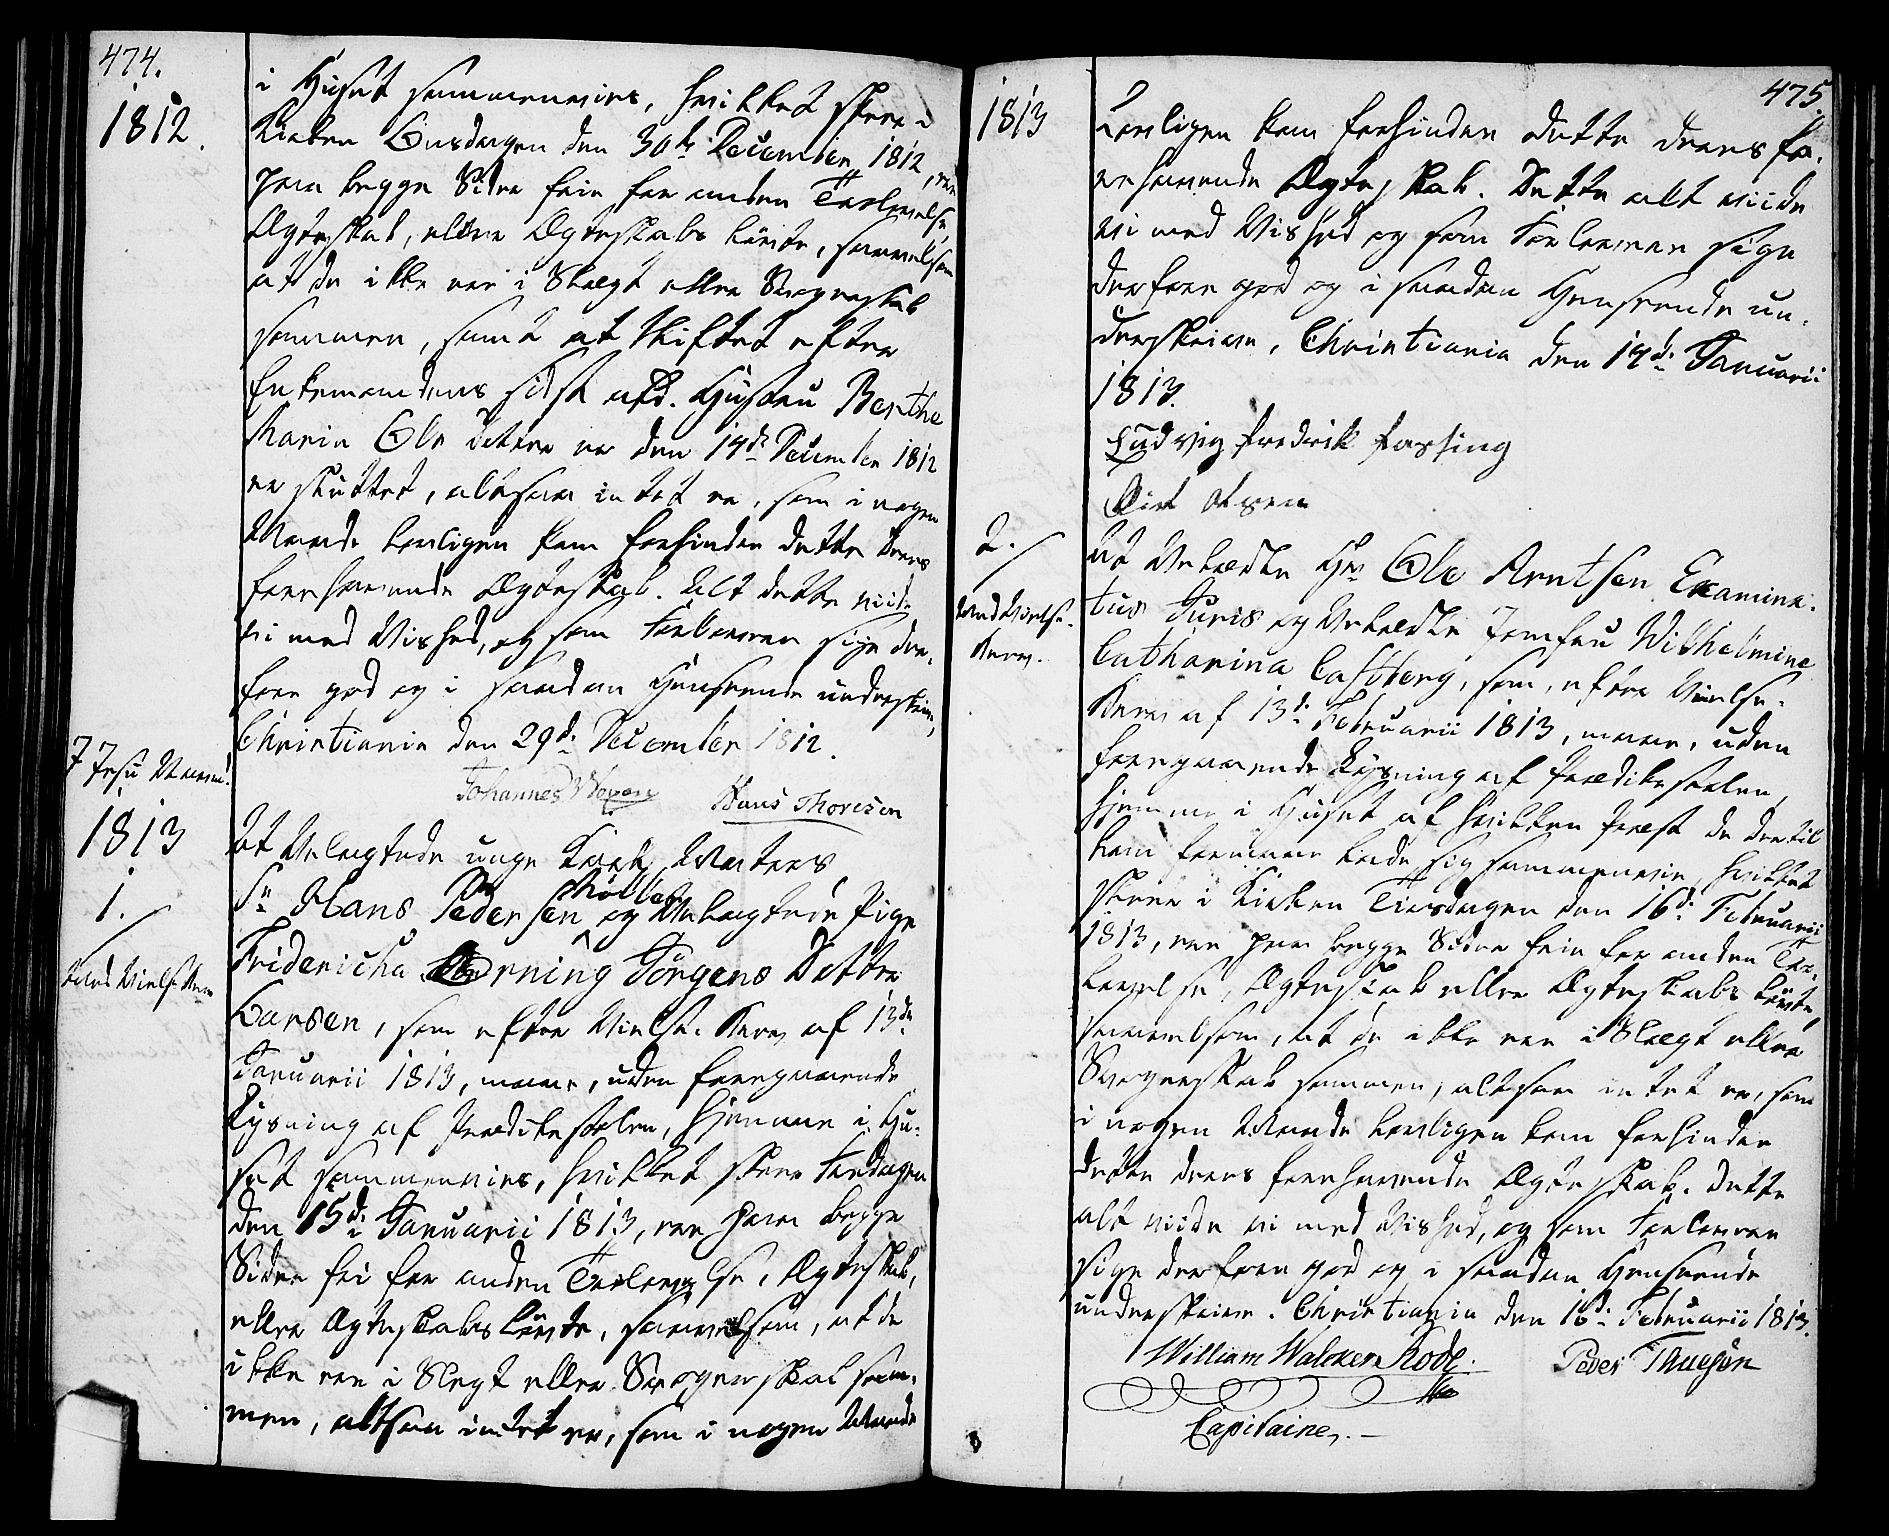 474.
1812.
i Huset sammenvies, hvilket skeer i
Kirken Onsdagen den 30te December 1812, ere
paa begge Sider frie for anden Trolovelse
Ægteskab, eller Ægteskabs Løvte, saavelsom
at de ikke ere i Slægt eller Svogerskab
sammen, samt at Skiftet efter
Enkemandens sidst afd. Hustru Berthe
Maria Ols Datter er den 14de December 1812
er sluttet, altsaa intet er, som i nogen
Maade lovligen kan forhindre dette deres
forehavende Ægteskab. Alt dette viide
vi med Vished, og som Forlovere sige der-
fore god og i saadan Henseende underskrive,
Christiania den 29de December 1812.
Johannes Hans Thoresen
J Jesu Navn!
1813
1.
med Vielse Brev
At Velagtede unge Karl, Matros,
Sr Hans Pedersen Møller og Velagtede Pige
Fridericha Horning Jörgens Datter
Larsen, som efter Vielse-Brev af 13de
Januarii 1813, maae, uden foregaaende
Lysning af Prædikestolen, hjemme i Hu-
set sammenvies, hvilket skeer Fredagen
den 15de Januarii 1813, ere paa begge
Sider fri for anden Trolovelse, Ægteskab,
eller Ægteskabs Løvte, saavelsom, at de
ikke ere i Slegt eller Svogerskab sam-
men, altsaa intet er, som i nogen Maade
475.
1813
Lovligen kan forhindre dette deres fo-
rehavende Ægteskab. Dette alt viide
vi med Vished og som Forlovere sige
derfore god og i saadan Henseende un-
derskrive, Christiania den 14de Januarii
1813.
Ludvig Fredrik
Olsen
2.
med Vielse-
Brev.
At Velædle Hr Ole Arntsen Examina-
tus Juris og Velædle Jomfru Wilhelmine
Catharina Castberg, som, efter Vielse-
Brev af 13de Februarii 1813, maae, uden
foregaaende Lysning af Prædikestolen,
hjemme i Huset af hvilken Præst de dertil
kan formaae lade sig sammenvie, hvilket
skeer i Kirken Tiirsdagen den 16de Februarii
1813, ere paa begge Sider frie for anden Tro-
lovelse, Ægteskab eller Ægteskabs Løvte,
saavelsom, at de ikke ere i Slægt eller
Svogerskab sammen, altsaa intet er, som
i nogen Maade lovligen kan forhindre
dette deres forehavende Ægteskab. Dette
alt viide vi med Vished, og som Forlovere
sige derfore god og i saadan Henseende
underskrive. Christiania den 16de Februarii 1813.
William Walker Rode. Peder Thuesen
Capitaine.